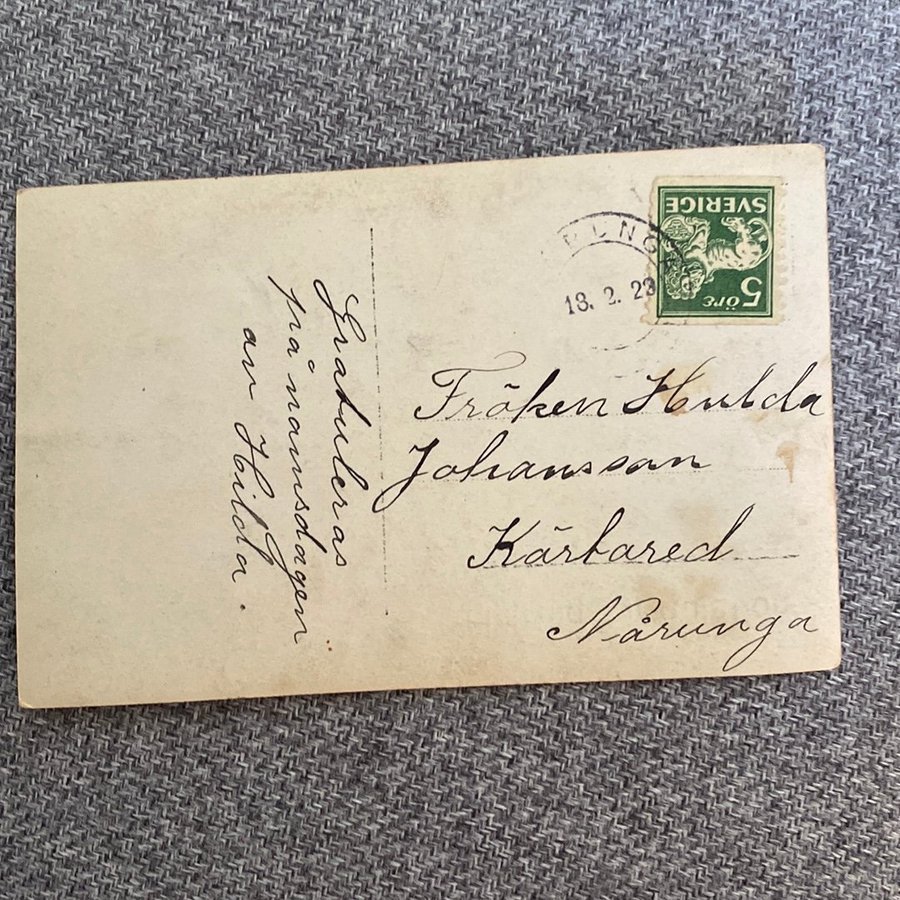 Gratuleras
på namnsdagen
av Hilda.
SVERIGE
5 ÖRE
18. 2. 23
Fröken Hulda
Johansson
Kärbared
Nårunga